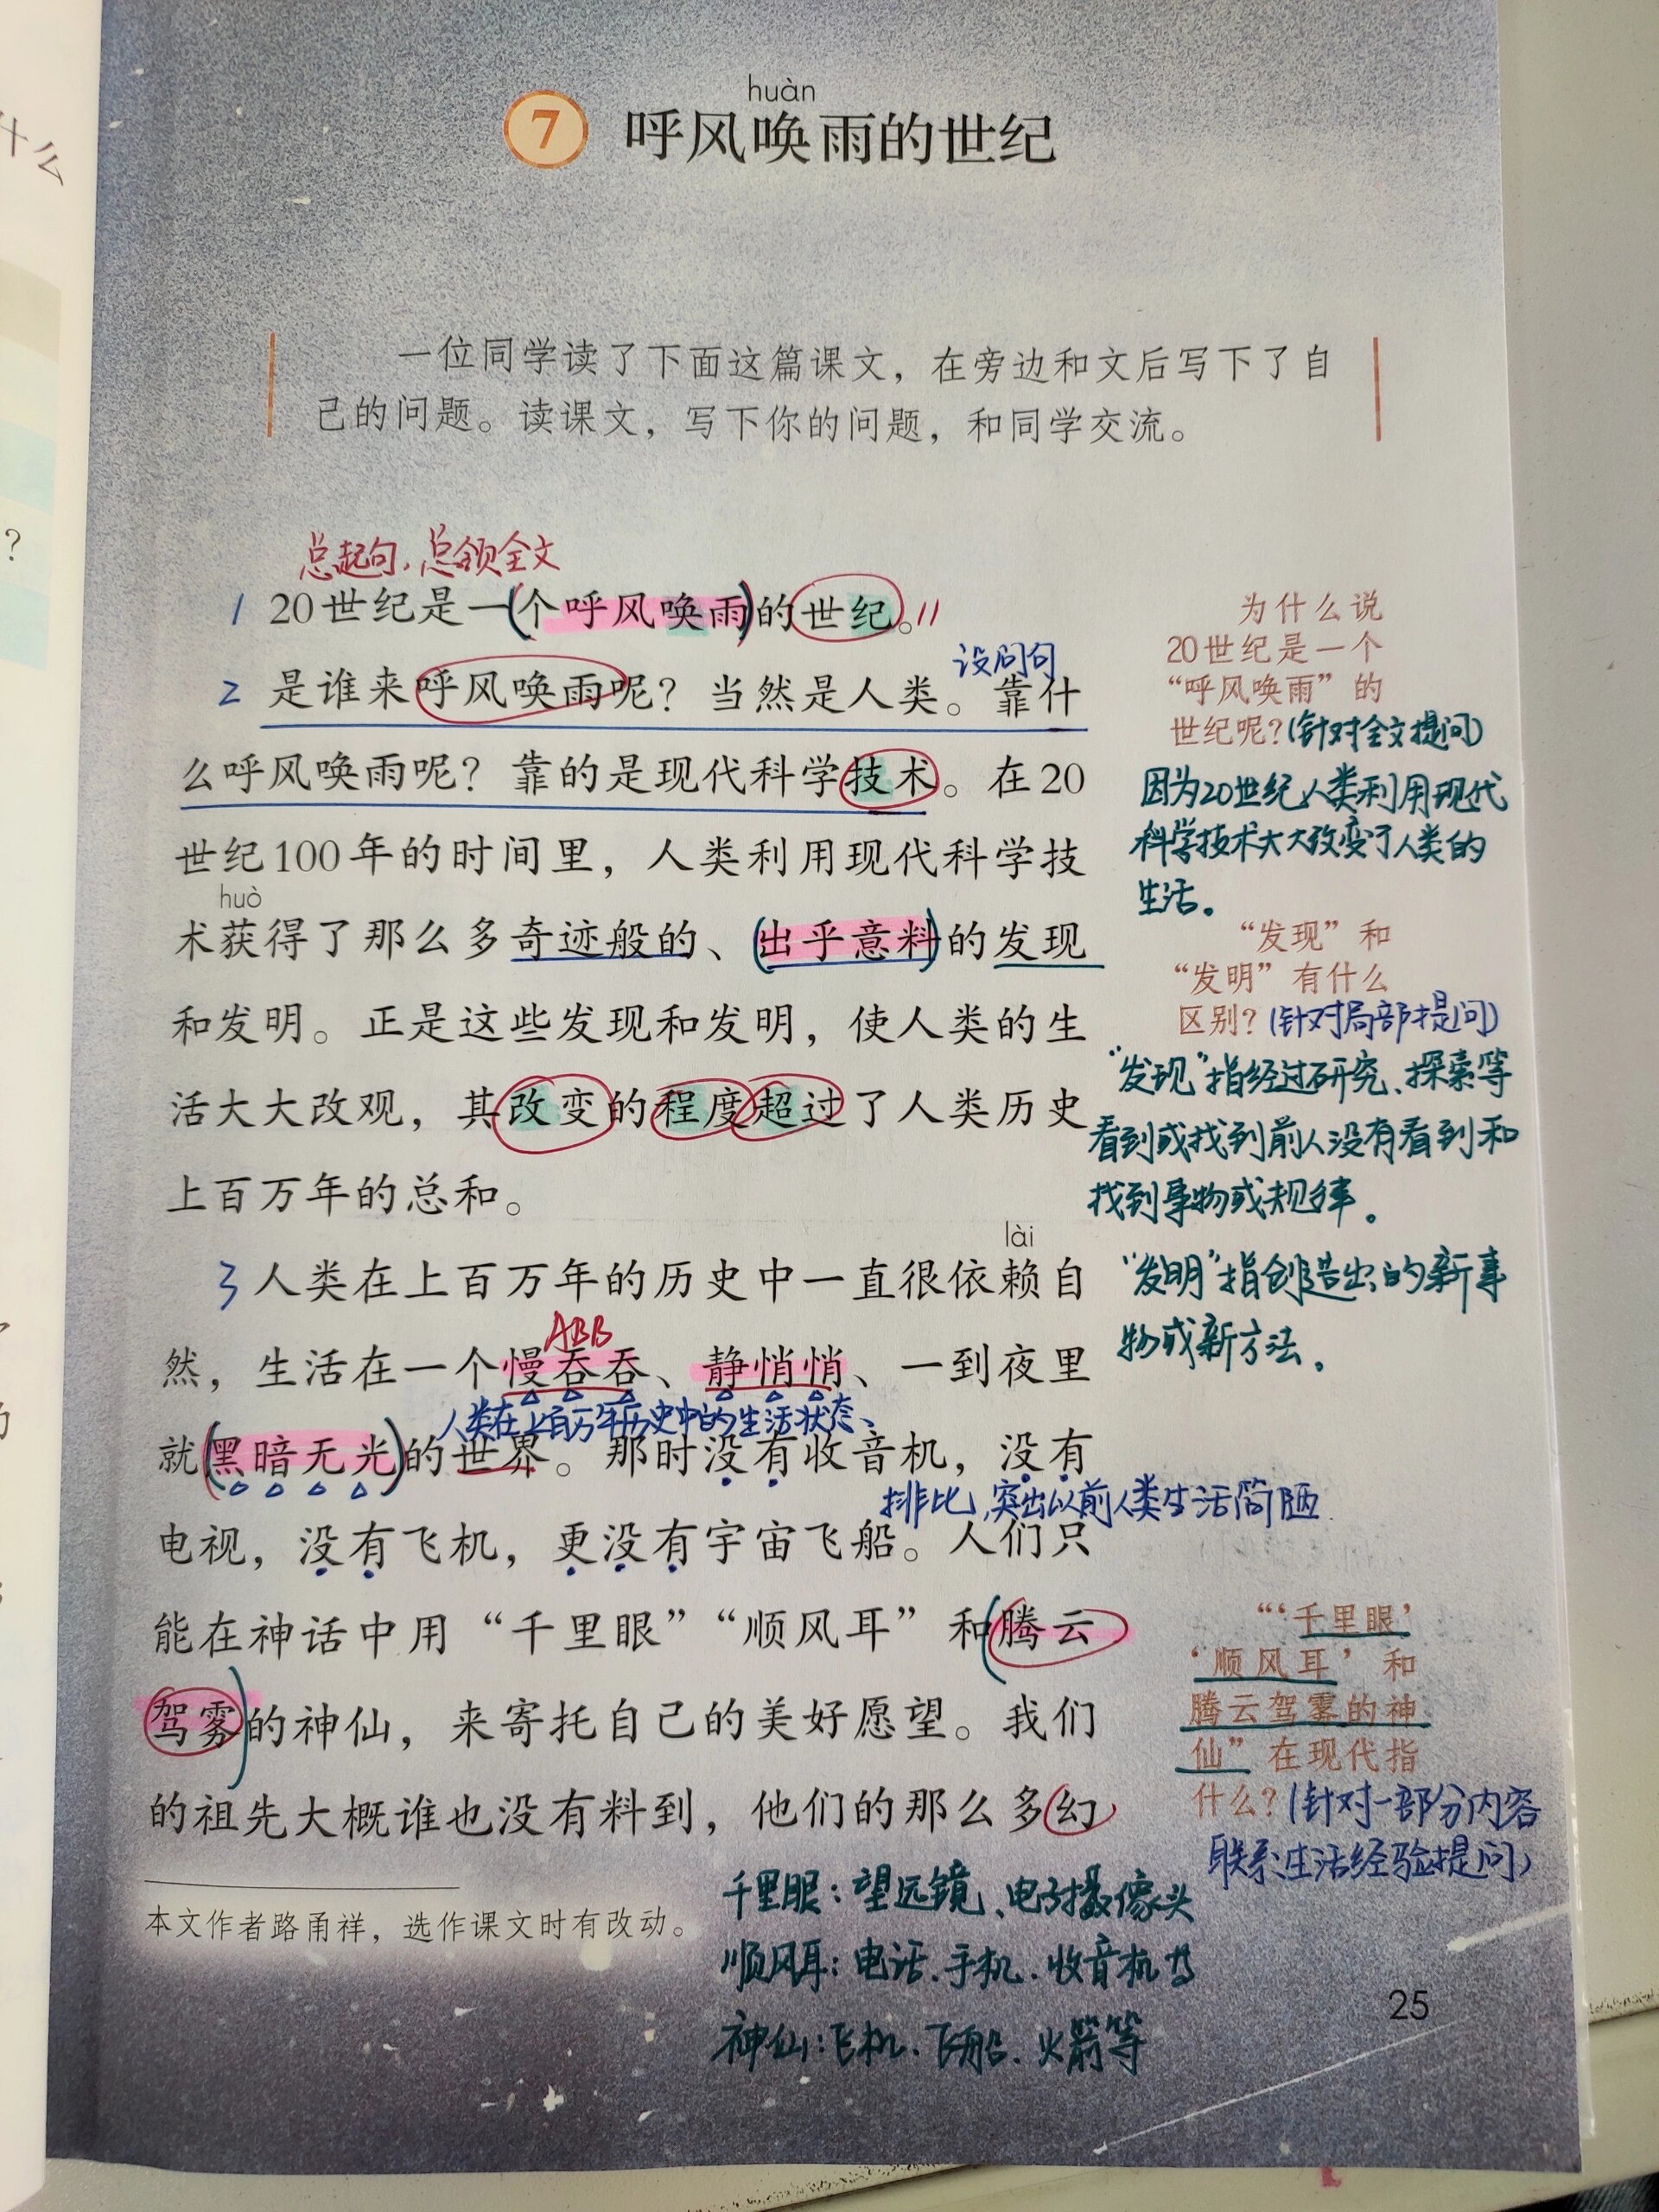 什么
？
huàn
7 呼风唤雨的世纪
一位同学读了下面这篇课文，在旁边和文后写下了自
己的问题。读课文，写下你的问题，和同学交流。
总起句，总领全文
1 20世纪是一个呼风唤雨的世纪。
设问句
2 是谁来呼风唤雨呢？当然是人类。靠什
么呼风唤雨呢？靠的是现代科学技术。在20
世纪100年的时间里，人类利用现代科学技
huò
术获得了那么多奇迹般的、出乎意料的发现
和发明。正是这些发现和发明，使人类的生
活大大改观，其改变的程度超过了人类历史
上百万年的总和。
lài
3 人类在上百万年的历史中一直很依赖自
ABB
然，生活在一个慢吞吞、静悄悄、一到夜里
人类在上百万年历史中的生活状态、
就黑暗无光的世界。那时没有收音机，没有
排比，突出以前人类生活简陋.
电视，没有飞机，更没有宇宙飞船。人们只
能在神话中用“千里眼”“顺风耳”和腾云
驾雾的神仙，来寄托自己的美好愿望。我们
的祖先大概谁也没有料到，他们的那么多幻
为什么说
20世纪是一个
“呼风唤雨”的
世纪呢？(针对全文提问)
因为20世纪人类利用现代
科学技术大大改变了人类的
生活。
“发现”和
“发明”有什么
区别？(针对局部提问)
“发现”指经过研究、探索等
看到或找到前人没有看到和
找到事物或规律。
“发明”指创造出的新事
物或新方法。
“‘千里眼’
‘顺风耳’和
腾云驾雾的神
仙”在现代指
什么？(针对一部分内容
联系生活经验提问)
千里眼：望远镜、电子摄像头
顺风耳：电话、手机、收音机等
神仙：飞机、飞船、火箭等
本文作者路甬祥，选作课文时有改动。
25